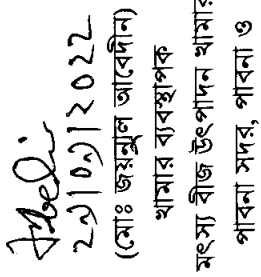 (মোঃ জয়নুল আবেদীন)
খামার ব্যবস্থাপক
মৎস্য বীজ উৎপাদন খামার
পাবনা সদর, পাবনা ও